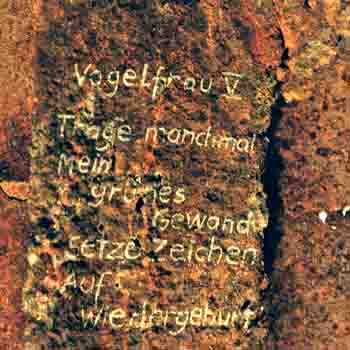 Vogelfrau V
Trage manchmal
Mein
grünes
Gewand
Setze Zeichen
Auf
Wiedergeburt